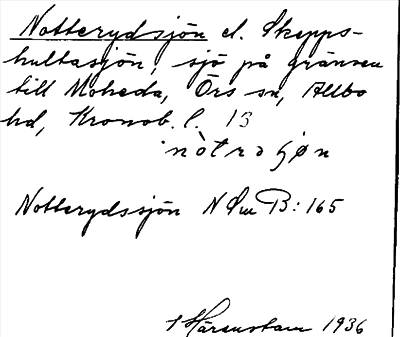 Notterydsjön el. Skepps-
hultasjön, sjö på gränsen
till Moheda, Örs sn, Allbo
hd, Kronob. l. 13
nòtrasjøn
Notterydssjön N Sm B: 165
Härenstam 1936